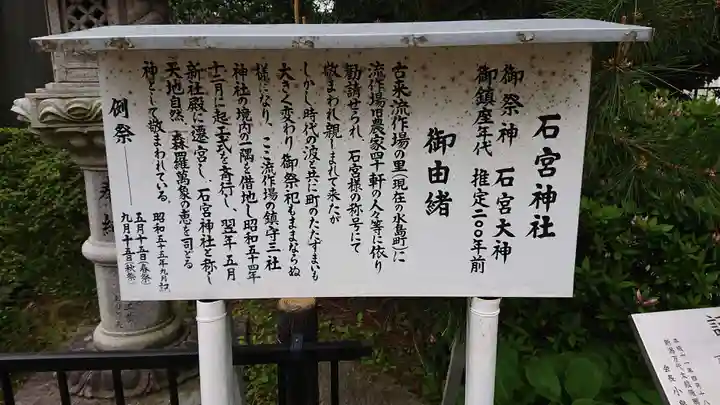 石宮神社
御祭神　石宮大神
御鎮座年代　推定二〇〇年前
御由緒
古来流作場の里(現在の水島町)に
流作場旧農家四十軒の人々等に依り
勧請せられ、石宮様の称号にて
敬まわれ親しまれて来たが
しかし時代の波と共に町のたたずまいも
大きく変わり御祭祀もままならぬ
様になり、ここ流作場の鎮守三社
神社の境内の一隅を借地し昭和五十四年
十二月に起工式を斉行し、翌年五月
新社殿に遷宮し、石宮神社と称し
天地自然、森羅萬象の恵を司どる
神として敬まわれている。
昭和五十五年九月記
例祭
五月十五日(春祭)
九月十五日(秋祭)
奉